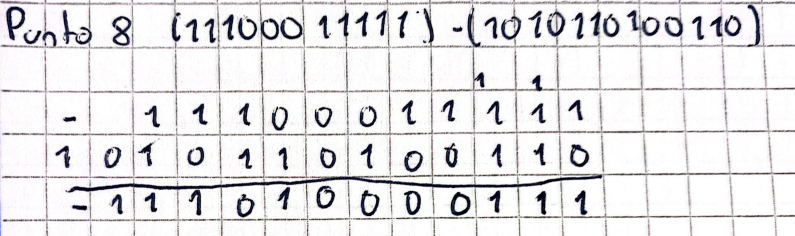 Punto 8 (11100011111) - (1010110100110)
1 1
- 1 1 1 0 0 0 1 1 1 1 1
1 0 1 0 1 1 0 1 0 0 1 1 0
- 1 1 1 0 1 0 0 0 0 1 1 1